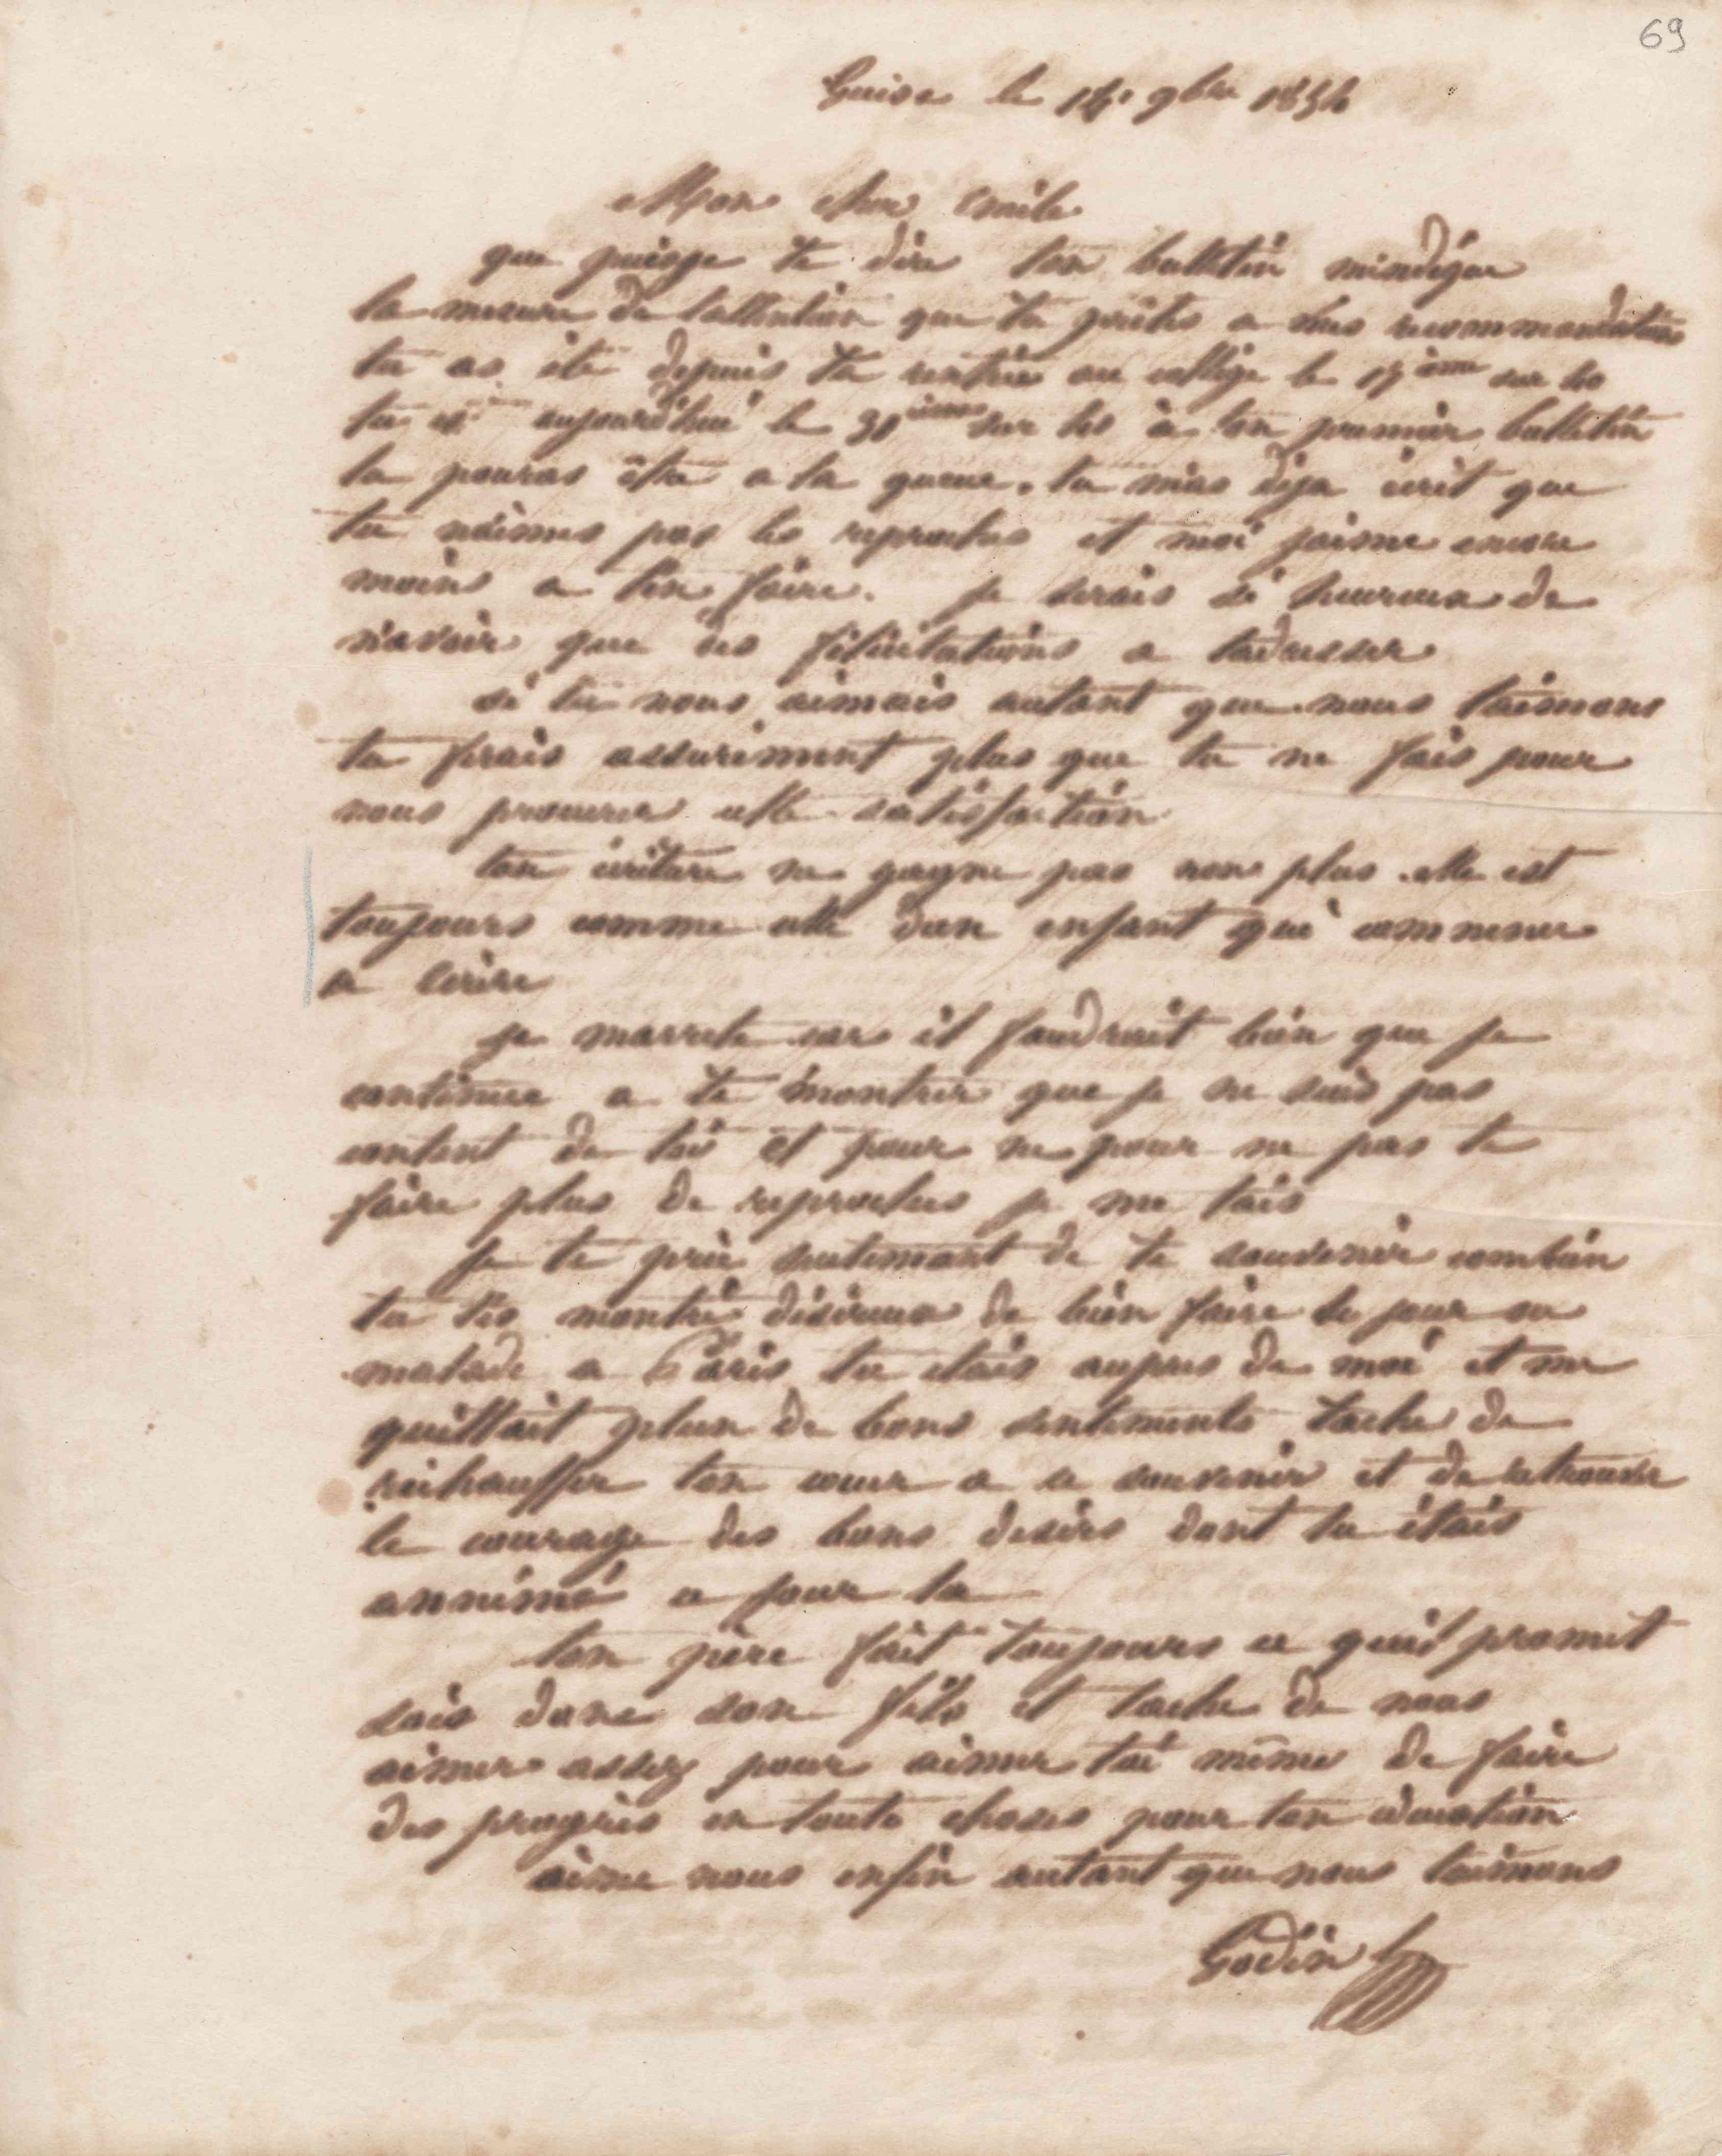 69
Guise le 14 9bre 1854
Mon cher Emile
que puisje te dire ton bulletin mindique
la mesure de lattention que tu prêtes a mes recommandations
tu as été depuis ta rentrée au collège le 15ème sur 60
tu es aujourd'hui le 30ième sur 60 à ton premier bulletin
tu pouras être a la queue. tu mas déja écrit que
tu naimes pas les reproches et moi jaime encore
moins a ten faire. je serais si heureux de
n'avoir que des félicitations a tadresser
si tu nous aimais autant que nous taimons
tu ferais assurément plus que tu ne fais pour
nous procurer cette satisfaction
ton écriture ne gagne pas non plus. elle est
toujours comme celle dun enfant qui commence
a écrire
je marrete car il faudrait bien que je
continue a te montrer que je ne suis pas
content de toi et pour ne pour ne pas te
faire plus de reproches je me tais
Je te prie seulement de te souvenir combien
tu tes montré désireux de bien faire le jour ou
malade a Paris tu étais aupres de moi et me
quittait plein de bons sentiments tache de
réchauffer ton cœur a ce souvenir et de retrouver
le courage des bons desirs dont tu étais
annimé ce jour la
ton père fait toujours ce qu'il promet
sois donc son fils et tache de nous
aimer assez pour aimer toi même de faire
des progrès en toute choses pour ton education
aime nous enfin autant que nous taimons
Godin